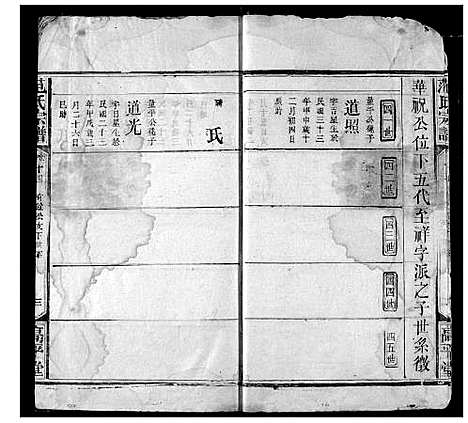 華祝公位下五代至祥字派之子世系徵
四一世
四二世
四三世
四四世
四五世
道照
量平公桃子
字吉星生於
民國三十三
年甲申歲十
二月初四日
氏
道光
量平公桃子
字日星生於
民國二十三
年甲戌歲三
月二十六日
巳時
氏宗譜
三
堂